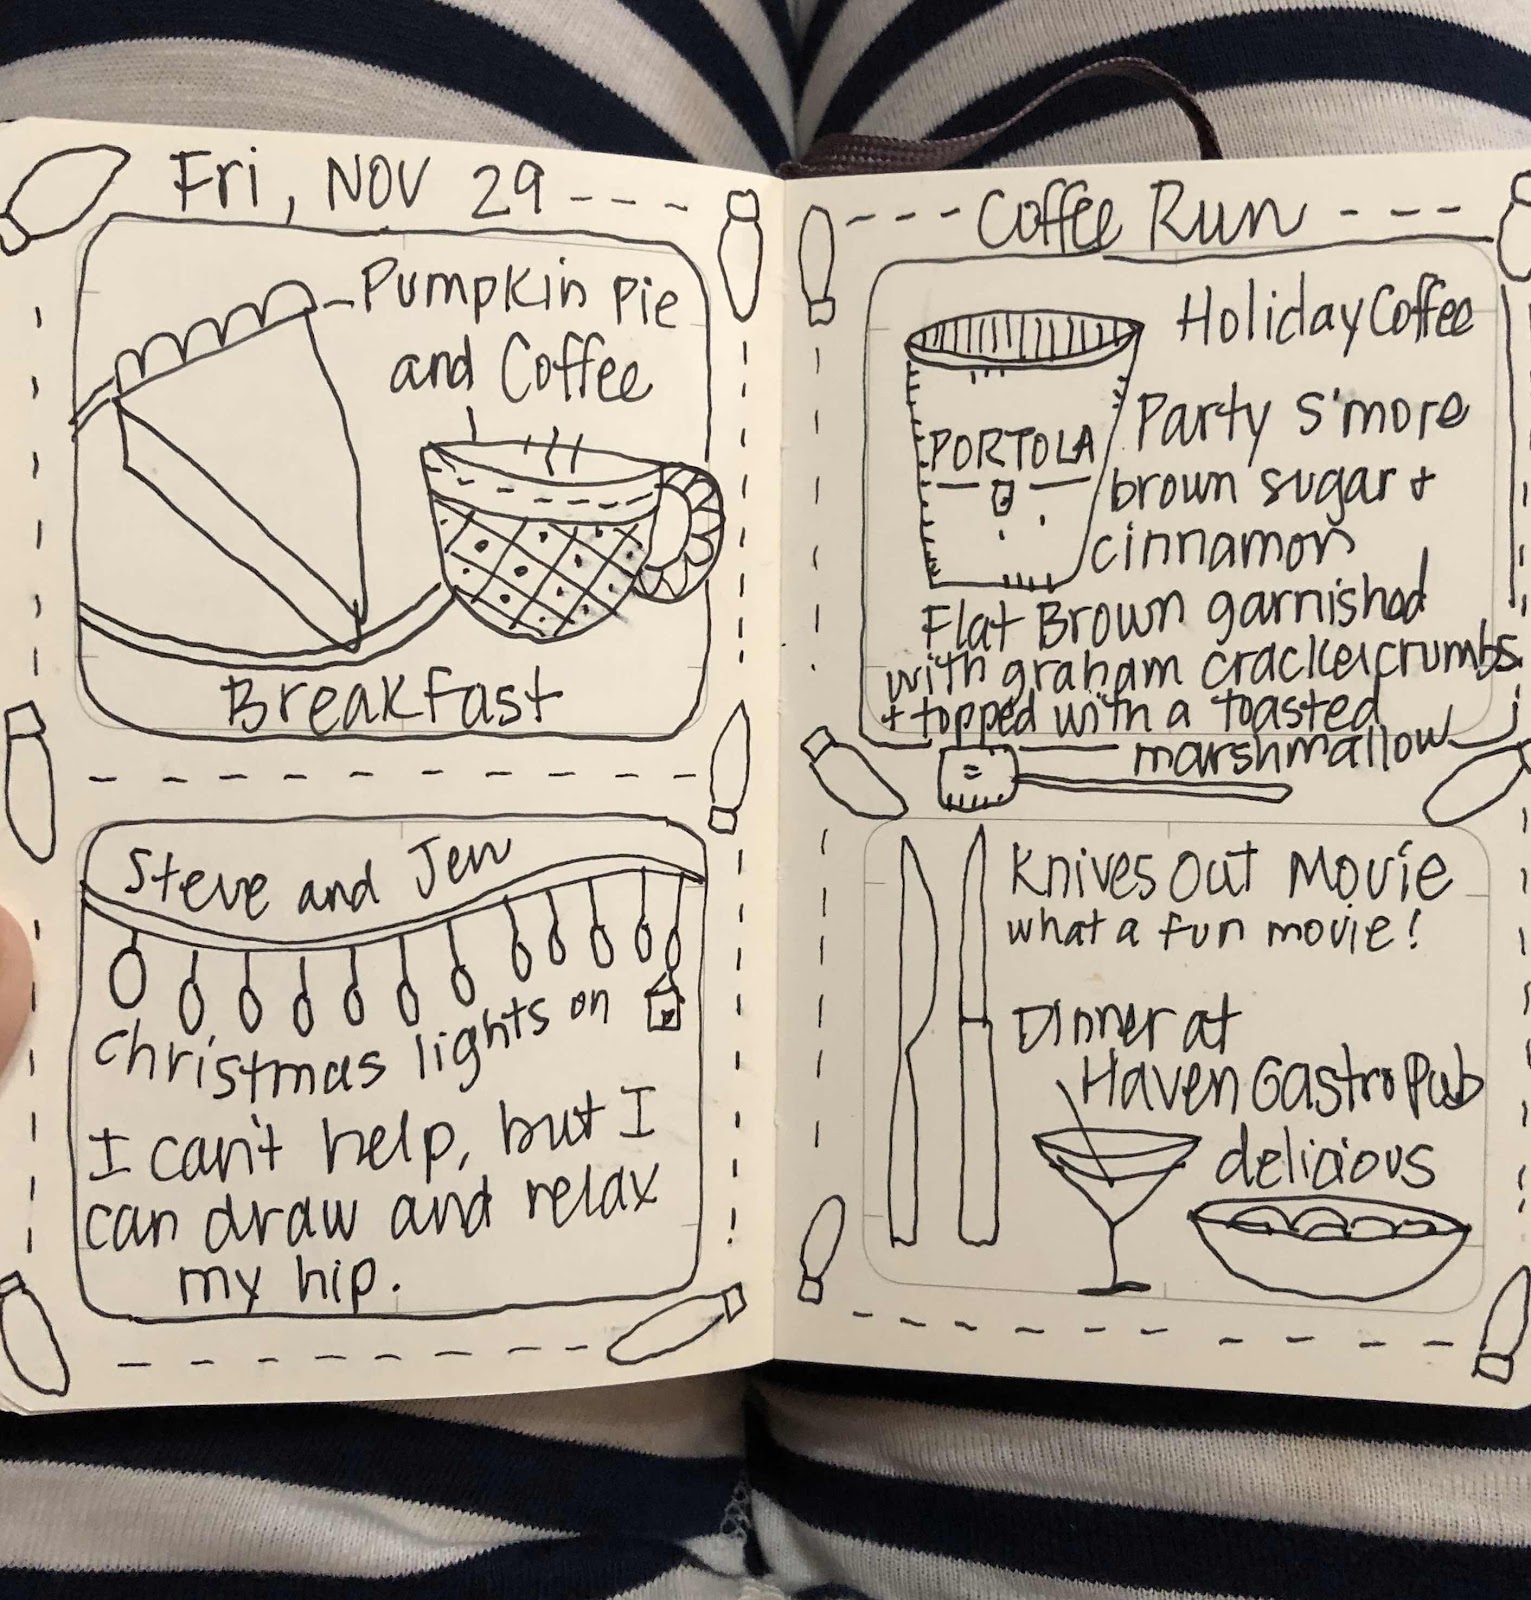 Fri, NOV 29
Pumpkin Pie
and Coffee
Breakfast
Steve and Jen
Christmas lights on
I can't help, but I
can draw and relax
my hip.
Coffee Run
Holiday Coffee
PORTOLA
Party S'more
brown sugar +
cinnamon
Flat Brown garnished
with graham cracker crumbs
+ topped with a toasted
marshmallow
Knives Out Movie
what a fun movie!
Dinner at
Haven Gastro Pub
delicious